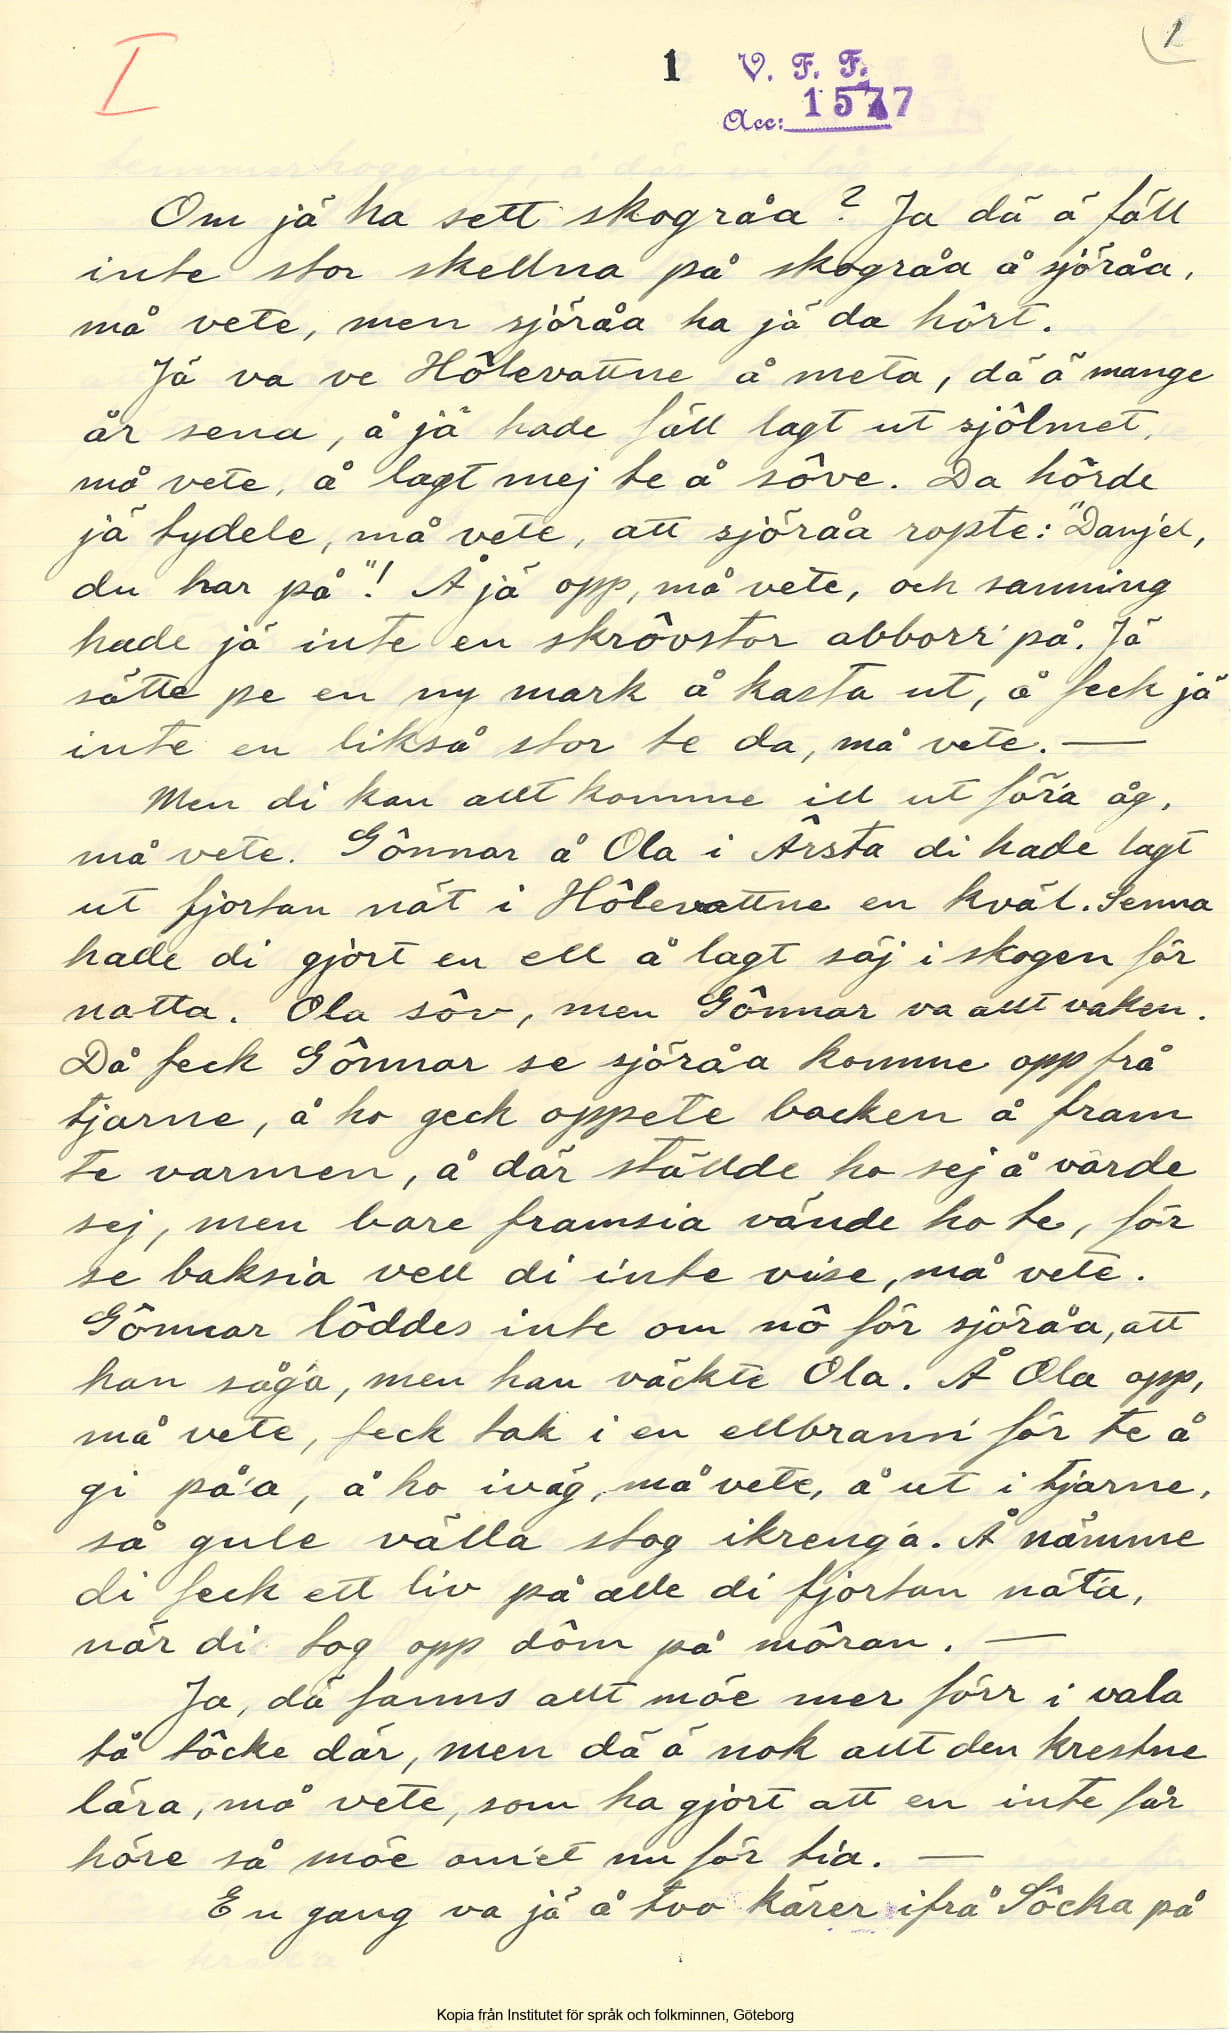 I
1
1 V. F. F.
Acc: 1577
Om jä ha sett skogråa? Ja dä ä fäll
inte stor skellna på skogråa å sjöråa,
må vete, men sjöråa ha jä da hôrt.
Jä va ve Hôlevattne å meta, dä ä mange
år sena, å jä hade fäll lagt ut sjôlmet,
må vete, å lagt mej te å sôve. Da hôrde
jä tydele, må vete, att sjöråa ropte: "Danjel,
du har på"! Å jä opp, må vete, och sanning
hade jä inte en skrôvstor abborr' på. Jä
sätte pe en ny mark å kasta ut, å feck jä
inte en likså stor te da, må vete. —
Men di kan allt komme ill ut för'a åg,
må vete. Gônnar å Ola i Ârsta di hade lagt
ut fjortan nät i Hôlevattne en kväl. Senna
hadde di gjort en ell å lagt säj i skogen för
natta. Ola sôv, men Gônnar va allt vaken.
Då feck Gônnar se sjöråa komme opp frå
tjarne, å ho geck oppete backen å fram
te varmen, å där ställde ho sej å värde
sej, men bare framsia vände ho te, för
se baksia vell di inte vise, må vete.
Gônnar lôddes inte om nô för sjöråa, att
han såg'a, men han väckte Ola. Å Ola opp,
må vete, feck tak i en ellbrann' för te å
gi på'a, å ho iväg, må vete, å ut i tjarne,
så gule välla stog ikreng'a. Å nämme
di feck ett liv på alle di fjortan näta,
när di tog opp dôm på môran. —
Ja, dä fanns allt möe mer förr i vala
tå tôcke där, men dä ä nok allt den krestne
lära, må vete, som ha gjort att en inte får
höre så möe om'et nu för tia. —
En gang va jä å tvo kärer ifrå Sôcka på
Kopia från Institutet för språk och folkminnen, Göteborg